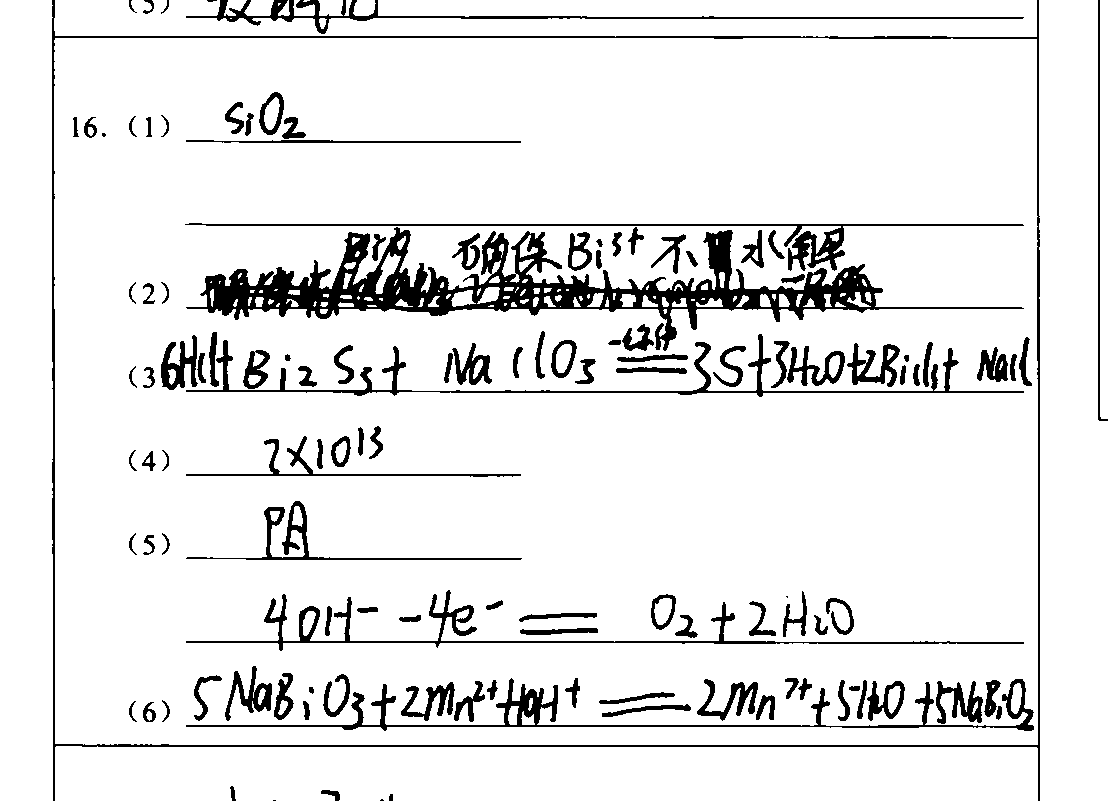 (5)
16. (1) SiO₂
Bi的 确保Bi³⁺不水解
(2)
(3 6HCl+Bi₂S₃+ NaClO₃ ═ 3S+3H₂O+2BiCl₃+ NaCl
(4) 7×10¹³
(5) PA
4OH⁻ -4e⁻ ═ O₂+2H₂O
(6) 5NaBiO₃+2Mn²⁺+10H⁺ ═ 2Mn⁷⁺+5H₂O+5NaBiO₂